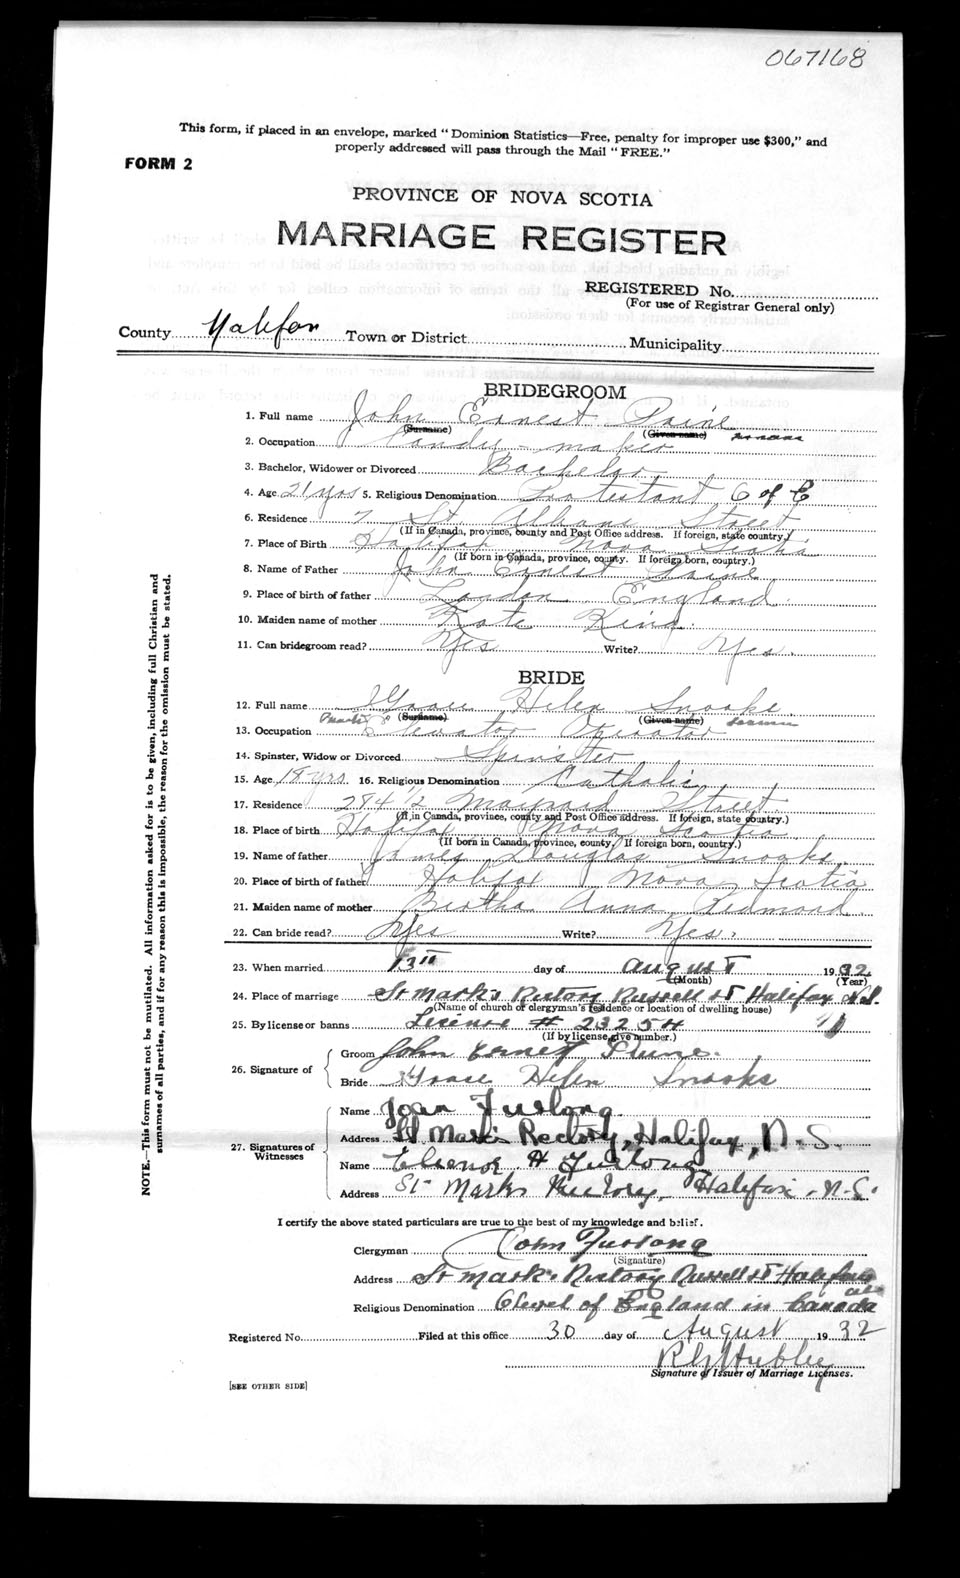 067168
This form, if placed in an envelope, marked "Dominion Statistics—Free, penalty for improper use $300," and
properly addressed will pass through the Mail "FREE."
FORM 2
PROVINCE OF NOVA SCOTIA
MARRIAGE REGISTER
REGISTERED No.
(For use of Registrar General only)
County Halifax Town or District Municipality
BRIDEGROOM
1. Full name John Ernest
(Surname) (Given name)
2. Occupation Candy-maker
3. Bachelor, Widower or Divorced Bachelor
4. Age 21 yrs 5. Religious Denomination Protestant C of E
6. Residence 7 St Albans Street
(If in Canada, province, county and Post Office address. If foreign, state country.)
7. Place of Birth Halifax Nova Scotia
(If born in Canada, province, county. If foreign born, country.)
8. Name of Father John Ernest
9. Place of birth of father London England.
10. Maiden name of mother Kate King.
11. Can bridegroom read? Yes Write? Yes.
BRIDE
12. Full name Grace Helen Snooks.
(Surname) (Given name)
13. Occupation Elevator Operator
14. Spinster, Widow or Divorced Spinster
15. Age 18 yrs. 16. Religious Denomination Catholic
17. Residence 284½ Maynard Street.
(If in Canada, province, county and Post Office address. If foreign, state country.)
18. Place of birth Halifax Nova Scotia
(If born in Canada, province, county. If foreign born, country.)
19. Name of father James Douglas Snooks.
20. Place of birth of father Halifax Nova Scotia
21. Maiden name of mother Bertha Anna Redmond.
22. Can bride read? Yes Write? Yes.
23. When married 13th day of August 1932
(Month) (Year)
24. Place of marriage St Mark's Rectory Russell St Halifax N.S.
(Name of church or clergyman's residence or location of dwelling house)
25. By license or banns License # 23254
(If by license, give number.)
26. Signature of
Groom John Ernest
Bride Grace Helen Snooks
27. Signatures of Witnesses
Name Joan Furlong.
Address St Mark's Rectory, Halifax, N.S.
Name Eleanor H Furlong
Address St Marks Rectory, Halifax, N.S.
I certify the above stated particulars are true to the best of my knowledge and belief.
Clergyman Furlong
(Signature)
Address St Mark's Rectory Russell St Halifax
Religious Denomination of England in Canada
Registered No. Filed at this office 30 day of August 1932
Hubley
Signature of Issuer of Marriage Licenses.
[SEE OTHER SIDE]
NOTE.—This form must not be mutilated. All information asked for is to be given, including full Christian and
surnames of all parties, and if for any reason this is impossible, the reason for the omission must be stated.